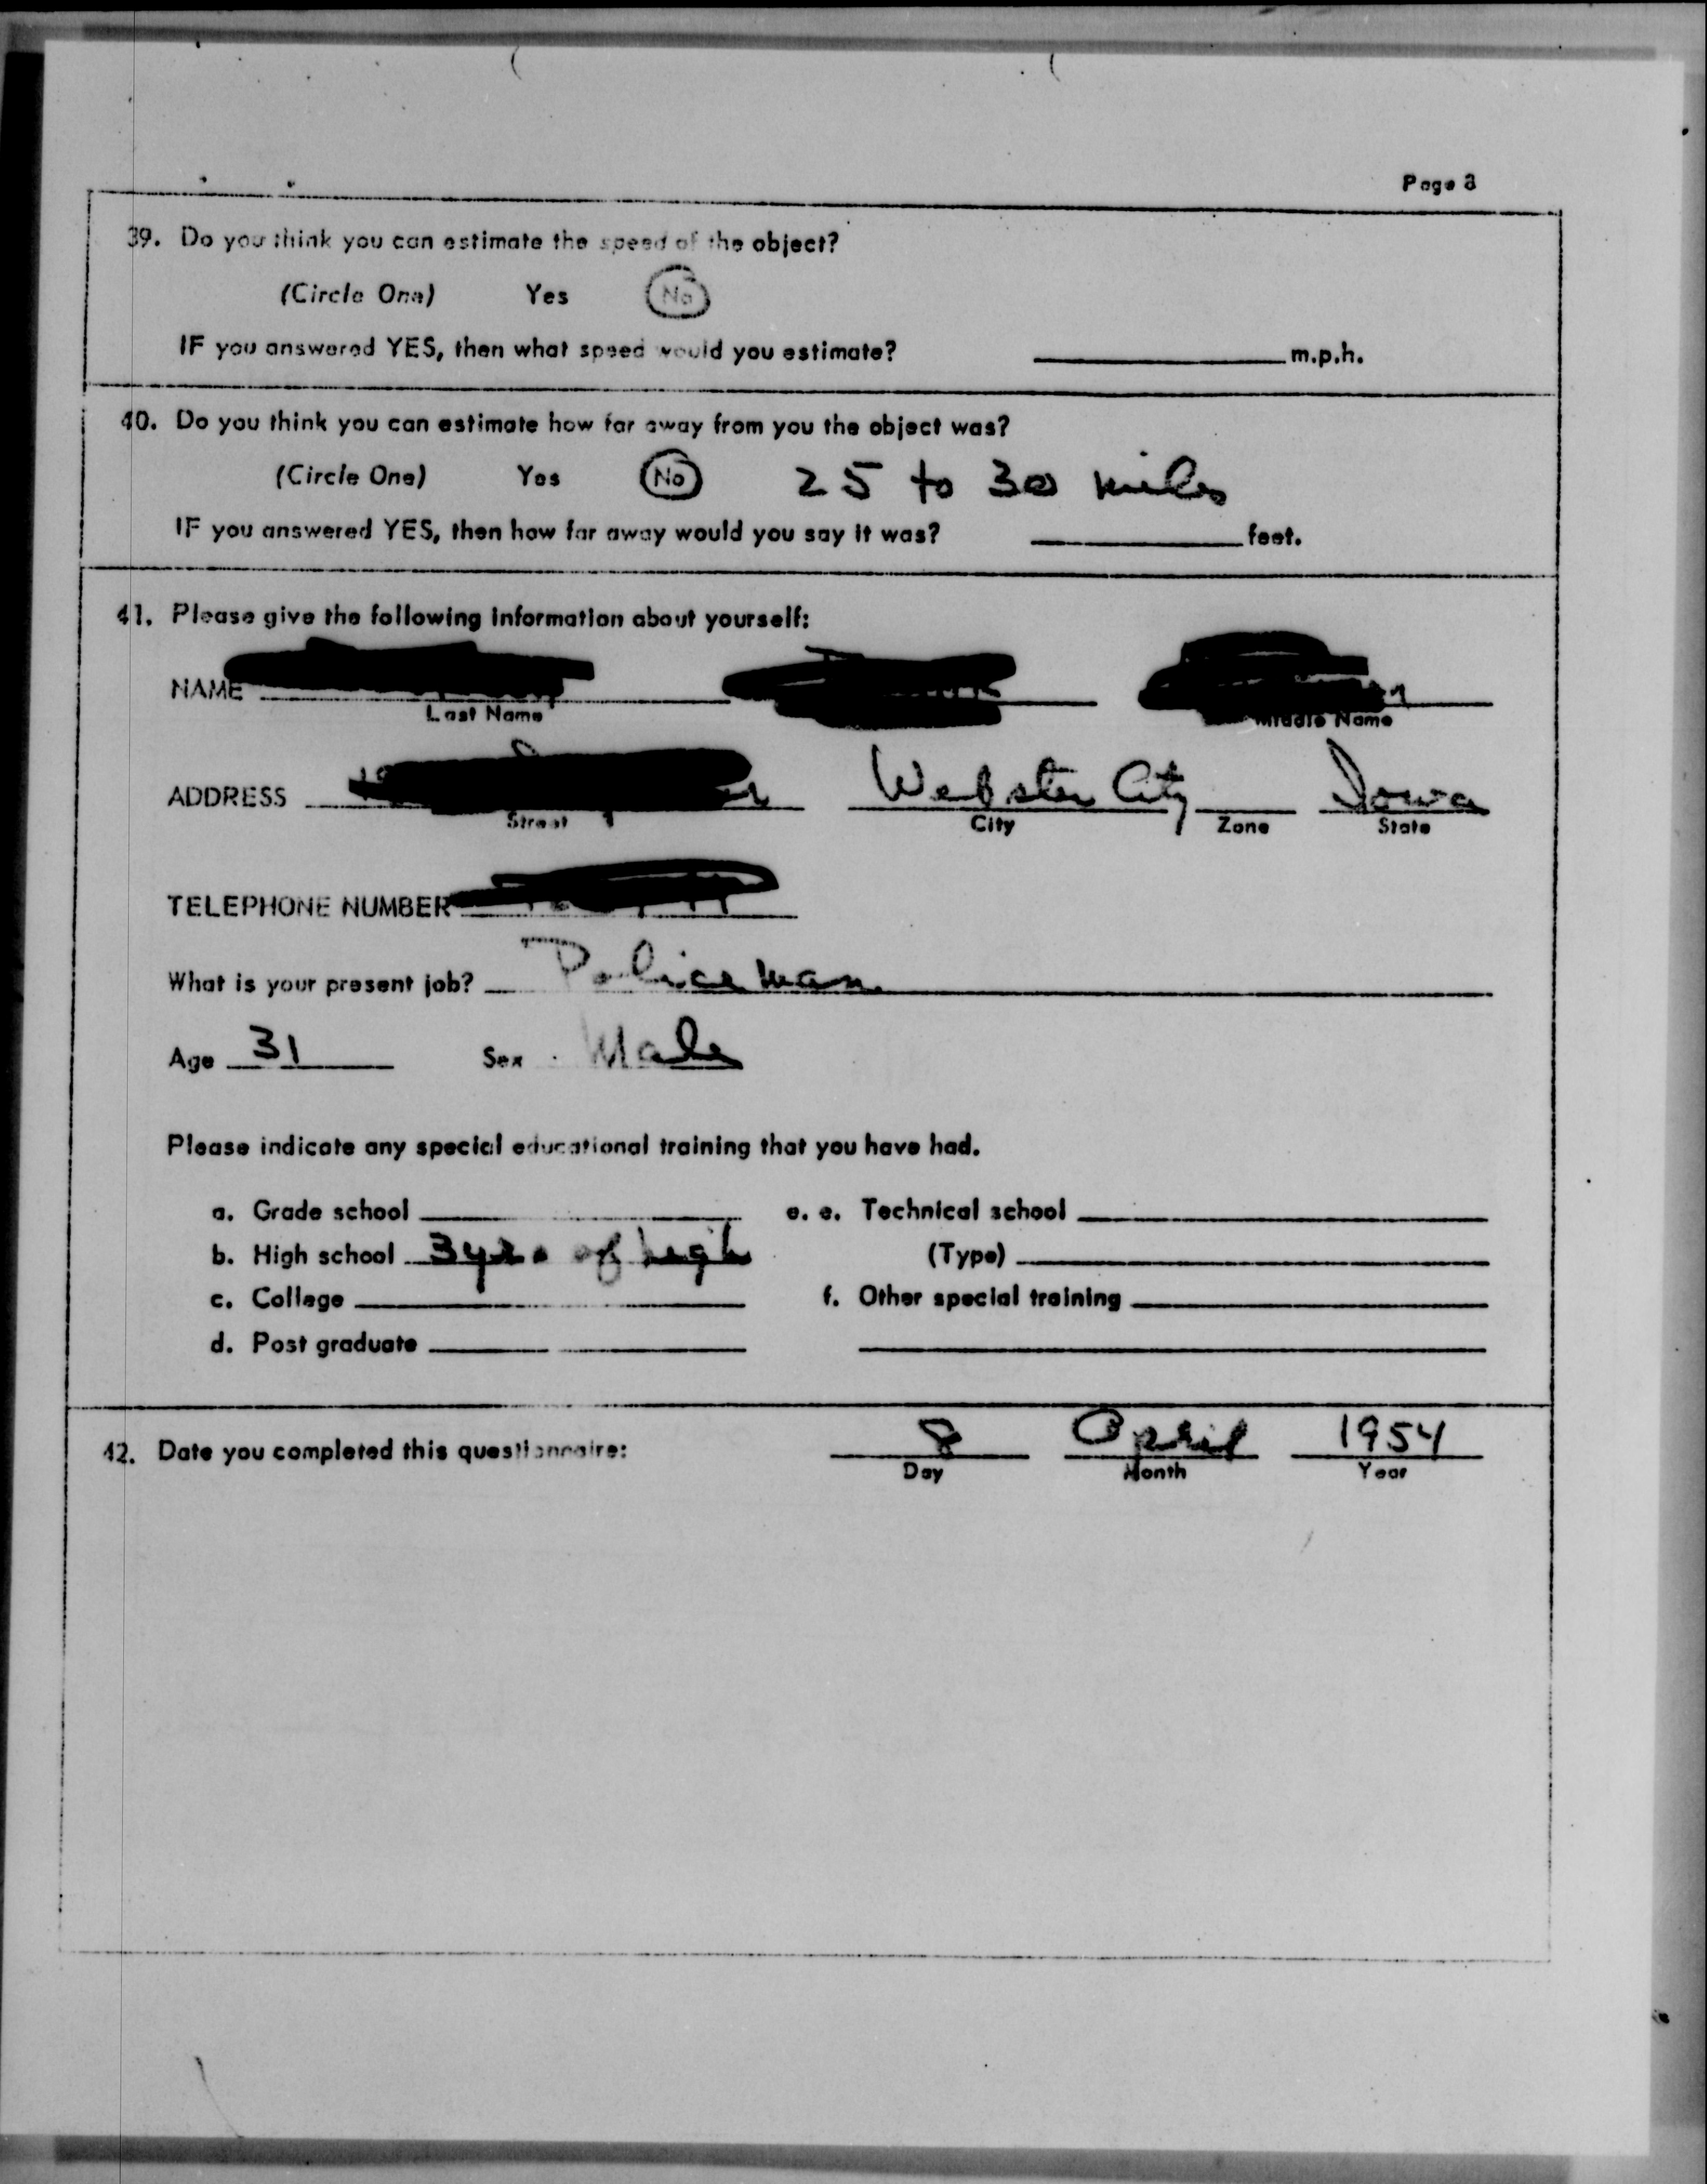 Page 8
39. Do you think you can estimate the speed of the object?
(Circle One) Yes No
IF you answered YES, then what speed would you estimate? m.p.h.
40. Do you think you can estimate how far away from you the object was?
(Circle One) Yes No 25 to 30 miles
IF you answered YES, then how far away would you say it was? feet.
41. Please give the following information about yourself:
NAME
Last Name Middle Name
ADDRESS Webster City Iowa
Street City Zone State
TELEPHONE NUMBER
What is your present job? Policeman
Age 31 Sex Male
Please indicate any special educational training that you have had.
a. Grade school e. e. Technical school
b. High school 3 yrs of high (Type)
c. College f. Other special training
d. Post graduate
42. Date you completed this questionnaire: 8 April 1954
Day Month Year